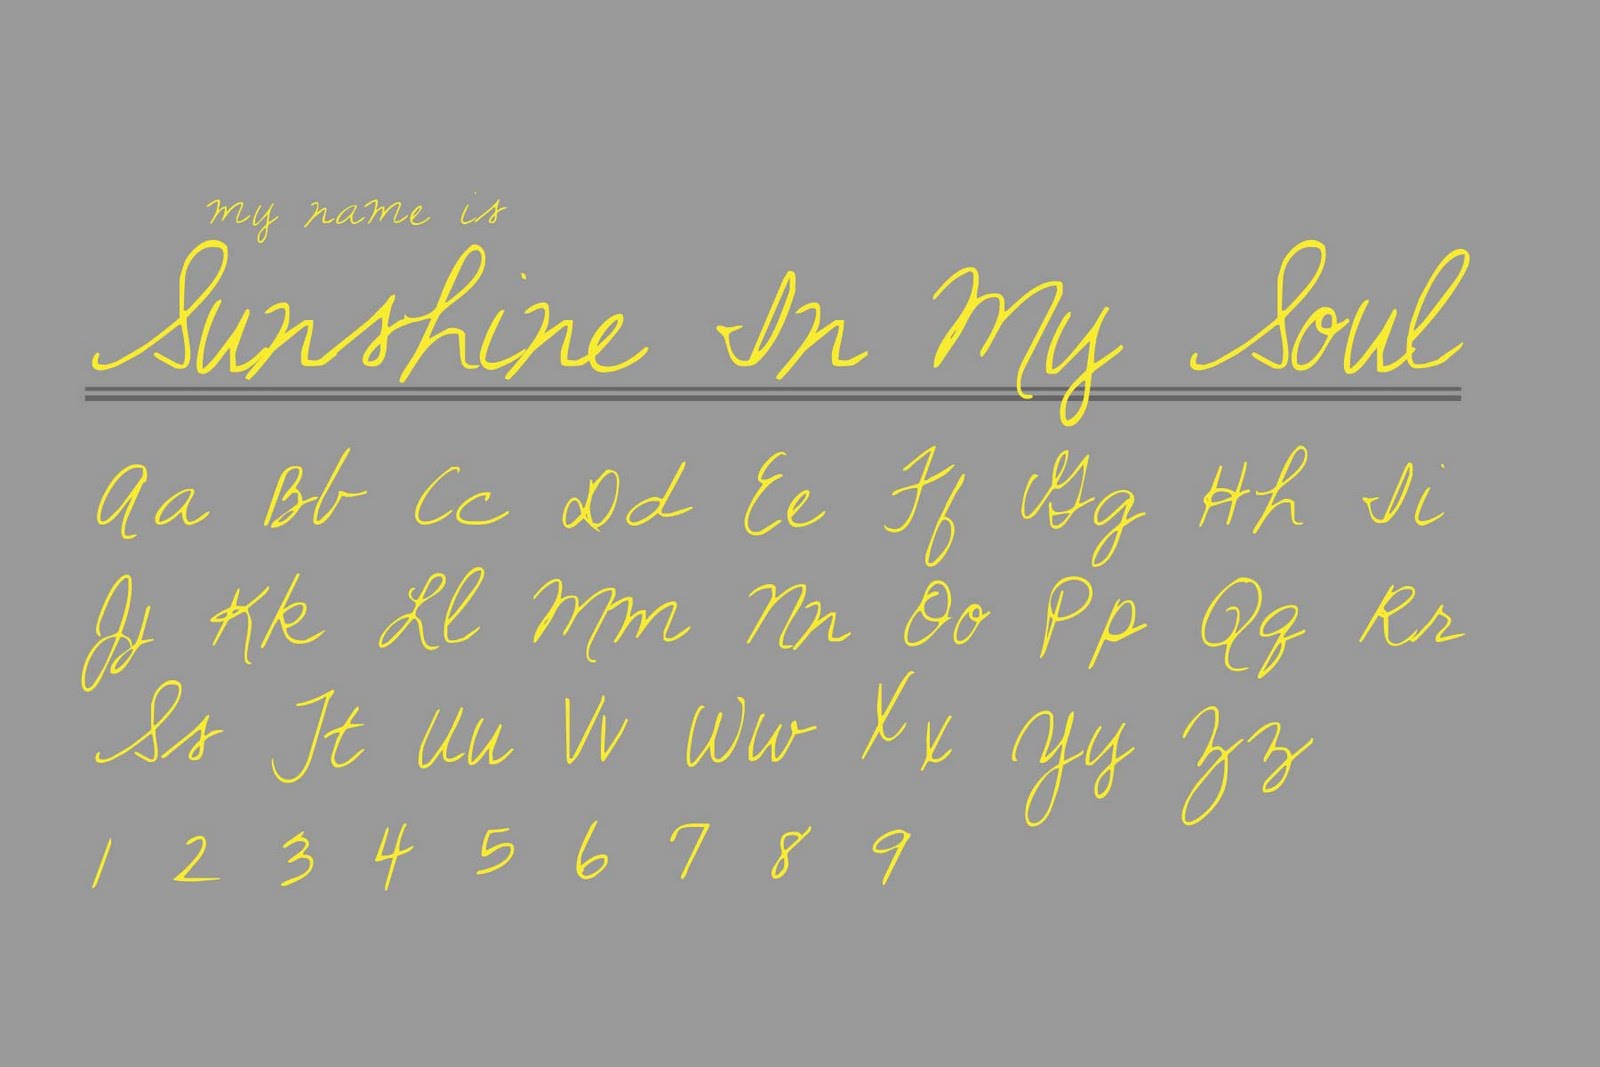 my name is
Sunshine In My Soul
Aa Bb Cc Dd Ee Ff Gg Hh Ii
Jj Kk Ll Mm Nn Oo Pp Qq Rr
Ss Tt Uu Vv Ww Xx Yy Zz
1 2 3 4 5 6 7 8 9